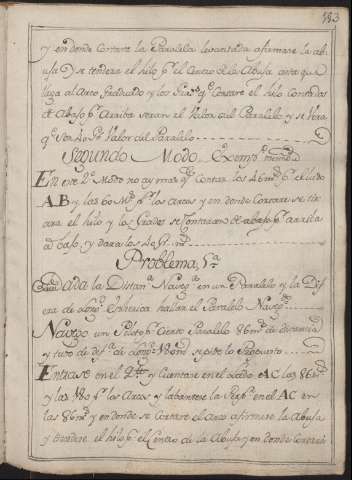 183
y en donde Cortare la Paralela levantada afirmare la abu
usa y se tendera el hilo pr el Centro de la Abusa asta que
llega al Arco Graduado y los que Cortare el hilo Contados
de Abajo pr Arriba seran el Valor del Paralelo y se vera
qe Ser Valor del Paralelo
Segundo Modo Exempo
En este 2o Modo no ay mas qe Contar los 46 ms pr el lado
AB y las 60 Ms pr los arcos y en donde Cortare se tir
ara el hilo y los Grados se Contaran de abajo pr arriba
Problema 5a
Dada la Distana Navega en un Parralelo y la Dif
era de Longd Esferica hallar el Paralelo Navego
Navego un Piloto pr Cierto Paralelo 86 ms de distancia
y tuvo de difa de Longd
Entrase en el y Cuentare en el Lado AC las 86 ms
y las pr los Arcos y labantese la Perpr en el AC en
las 86 ms y en donde se Cortare el arco afirmese la Abusa
y tiendese el hilo pr el Centro de la Abusa y en donde Cortare